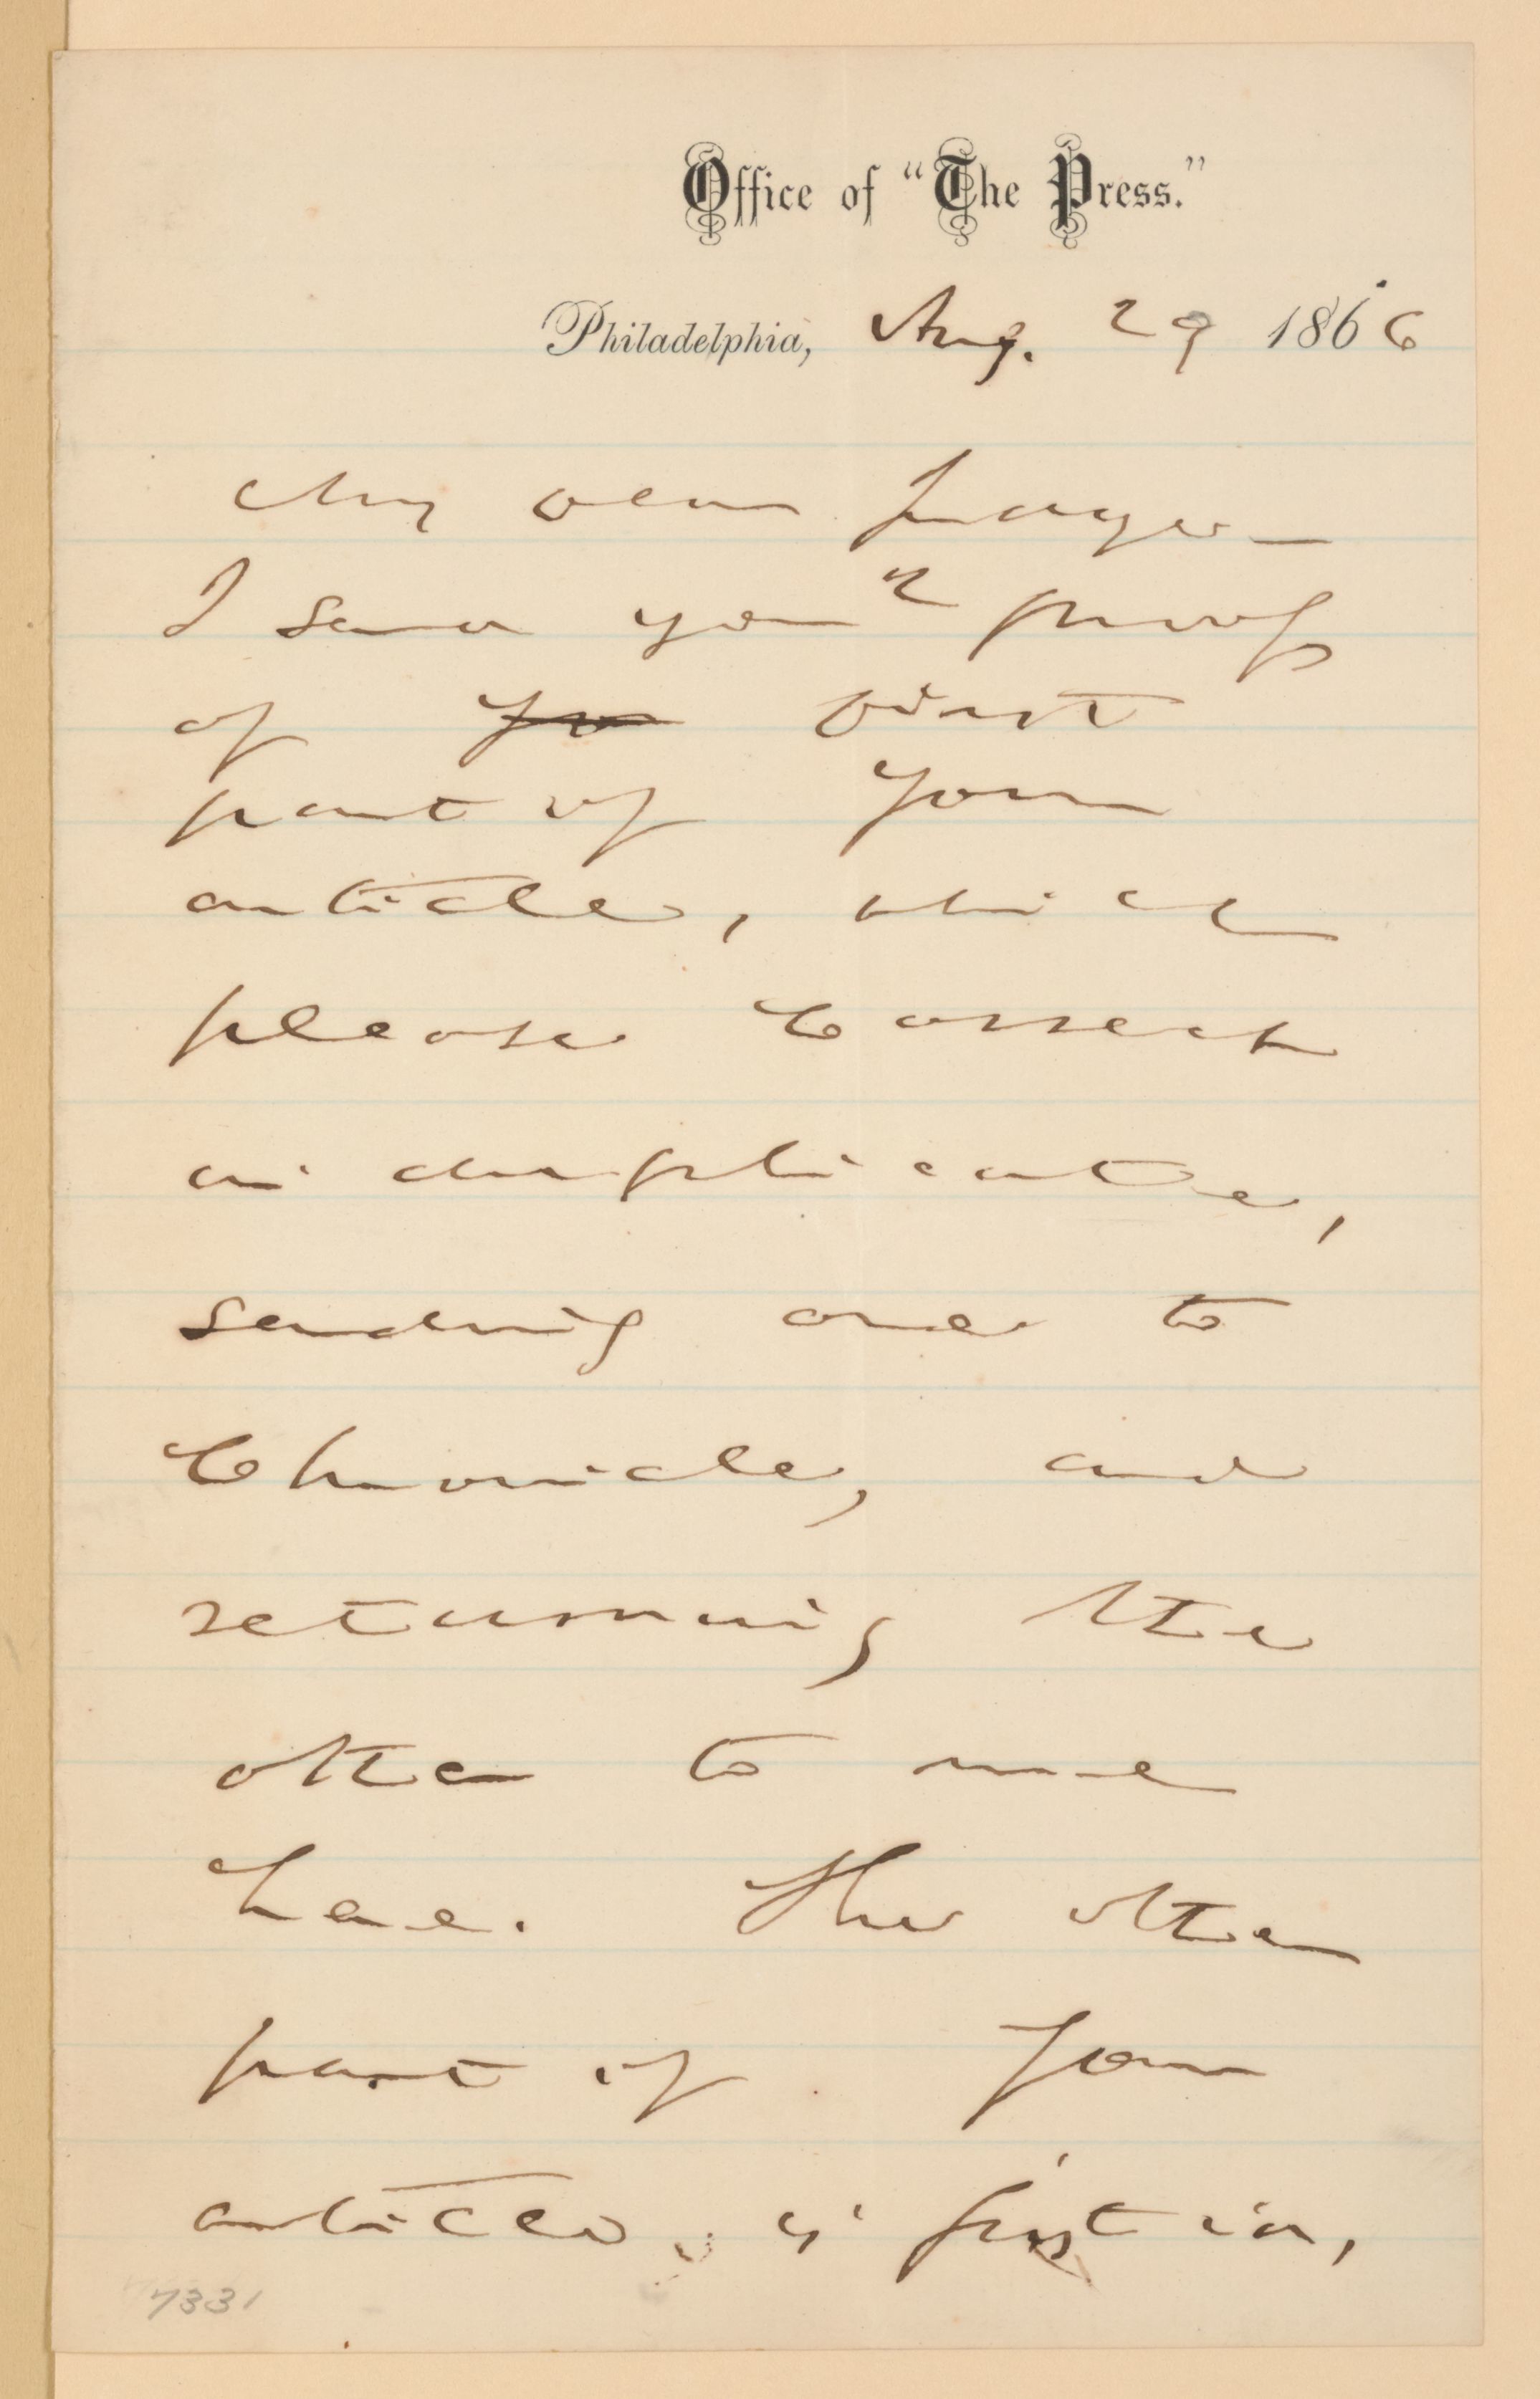 Office of "The Press."
Philadelphia, Aug. 29 1866
My dear
I send you 2 proofs
of first
part of your
article, which
please correct
in duplicate,
sending one to
Chronicle, and
returning the
other to me
here. The other
part of your
article, is just in,
7331